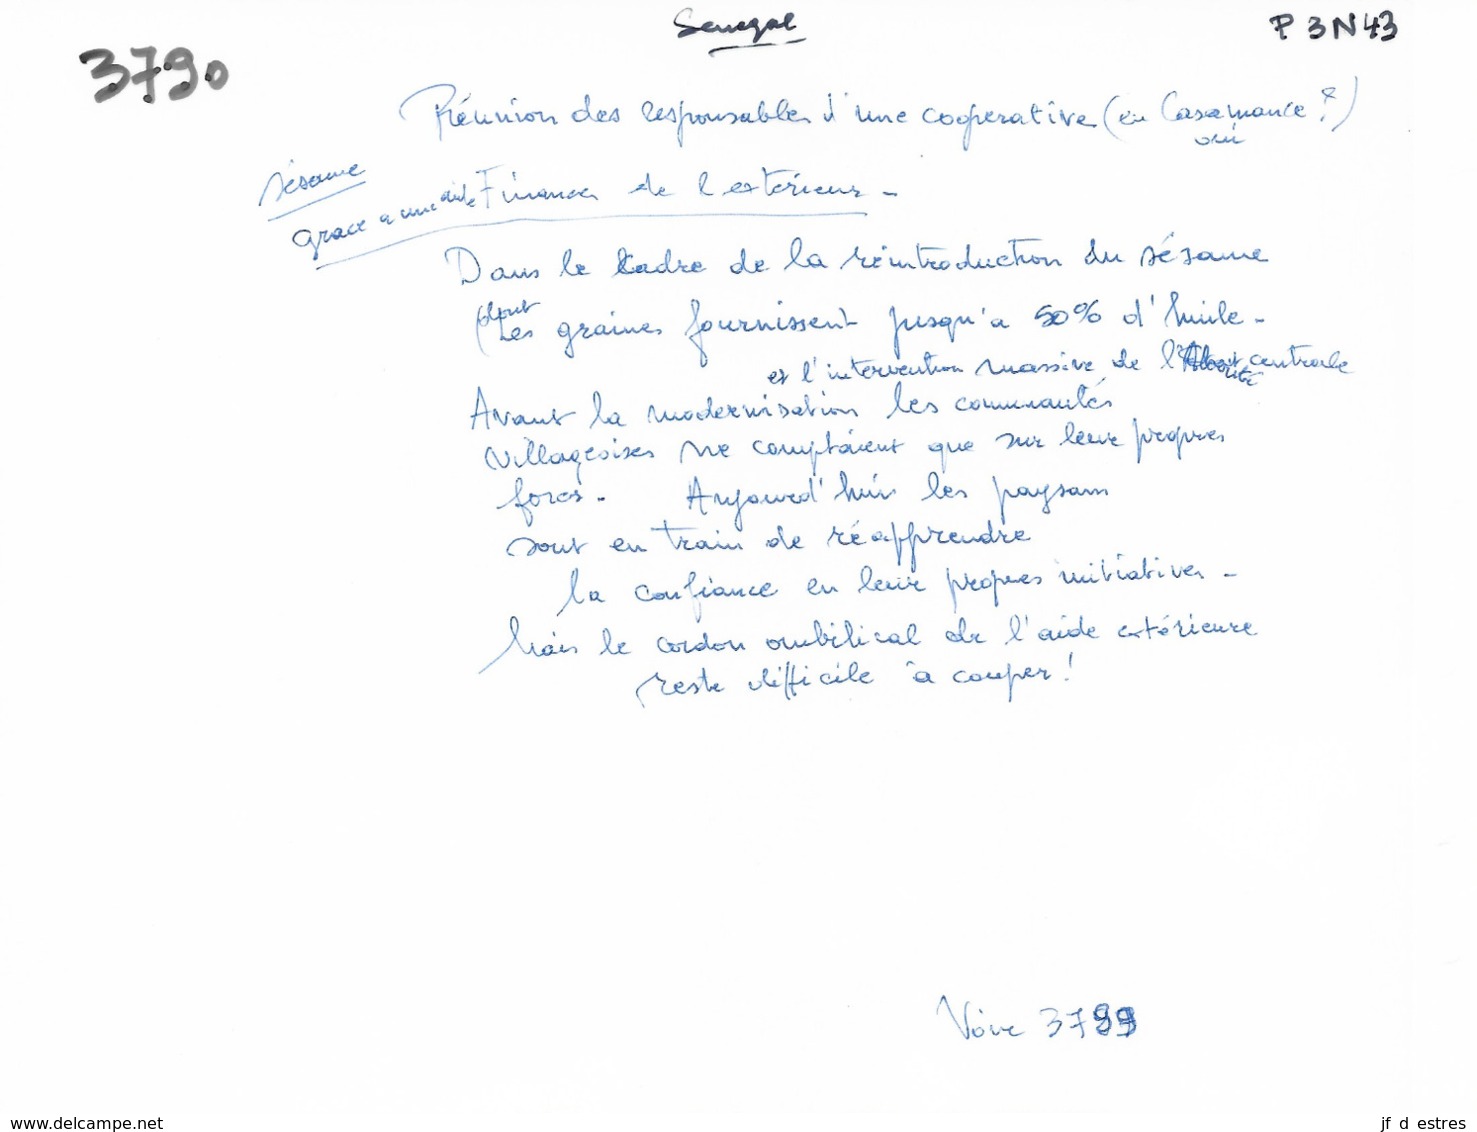 Senegal
P 3 N 43
3790
Réunion des responsables d'une cooperative (en Casamance ?)
oui
sésame
grace a une aide Financer de l'exterieur -
Dans le cadre de la réintroduction du sésame
(dont les graines fournissent jusqu'a 50% d'huile -
et l'intervention massive de l' centrale
Avant la modernisation les communautés
villageoises ne comptaient que sur leur propres
forces - Aujourd'hui les paysans
sont en train de réapprendre
la confiance en leur propres initiatives -
Mais le cordon ombilical de l'aide extérieure
reste difficile à couper !
Voir 3799
www.delcampe.net
jf d estres